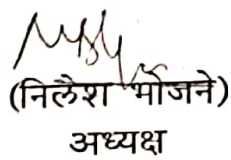 (निलेश भोजने)
अध्यक्ष